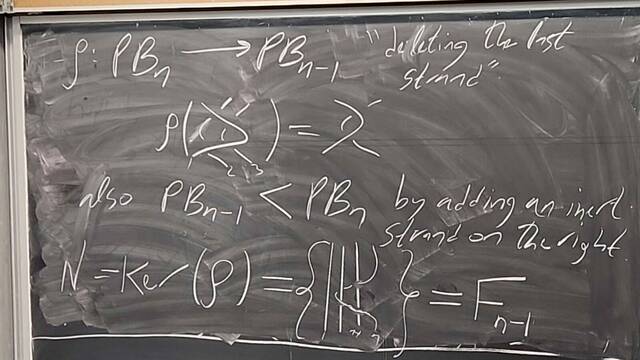 ρ: PB_n ⟶ PB_{n-1} "deleting the last
strand".
ρ( ) =
1 2 3
also PB_{n-1} < PB_n by adding an inert
strand on the right
N = Ker(ρ) = { } = F_{n-1}